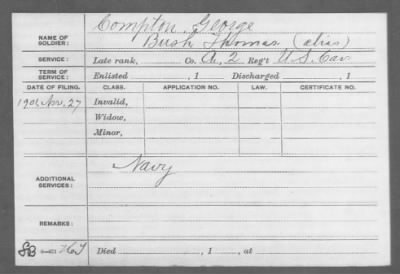 NAME OF SOLDIER: Compton, George
Bush Thomas (alias)
SERVICE: Late rank, Co. A, 2 Reg't U.S. Cav
TERM OF SERVICE: Enlisted , 1 Discharged , 1
DATE OF FILING. CLASS. APPLICATION NO. LAW. CERTIFICATE NO.
1901, Nov, 27 Invalid,
Widow,
Minor,
ADDITIONAL SERVICES: Navy
REMARKS:
Died , 1 , at